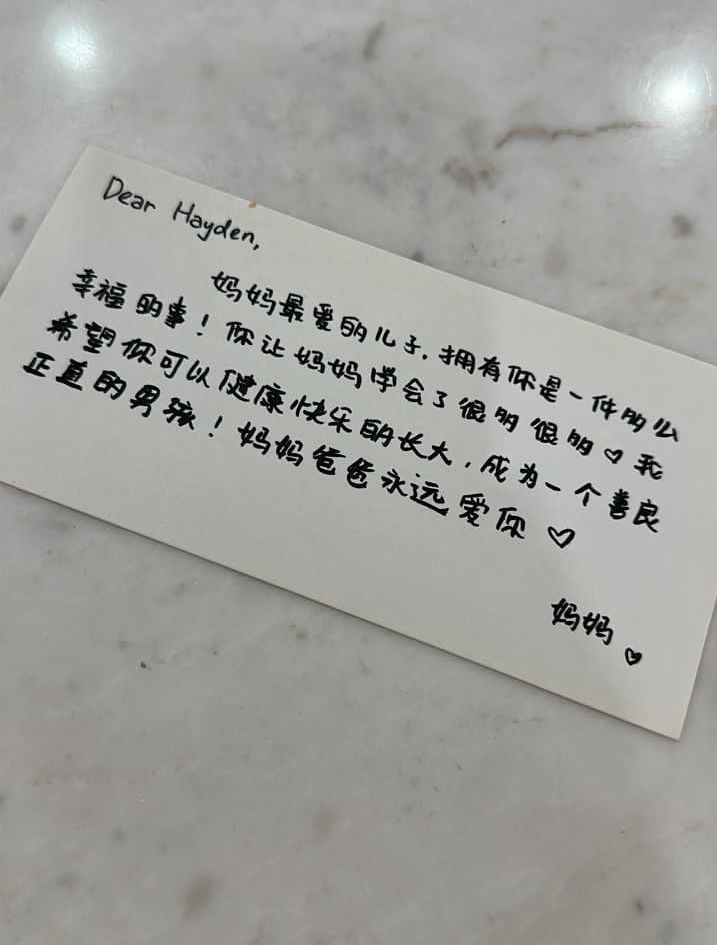 Dear Hayden,
妈妈最爱的儿子,拥有你是一件多么
幸福的事!你让妈妈学会了很多很多♡我
希望你可以健康快乐的长大,成为一个善良
正直的男孩!妈妈爸爸永远爱你♡
妈妈♡